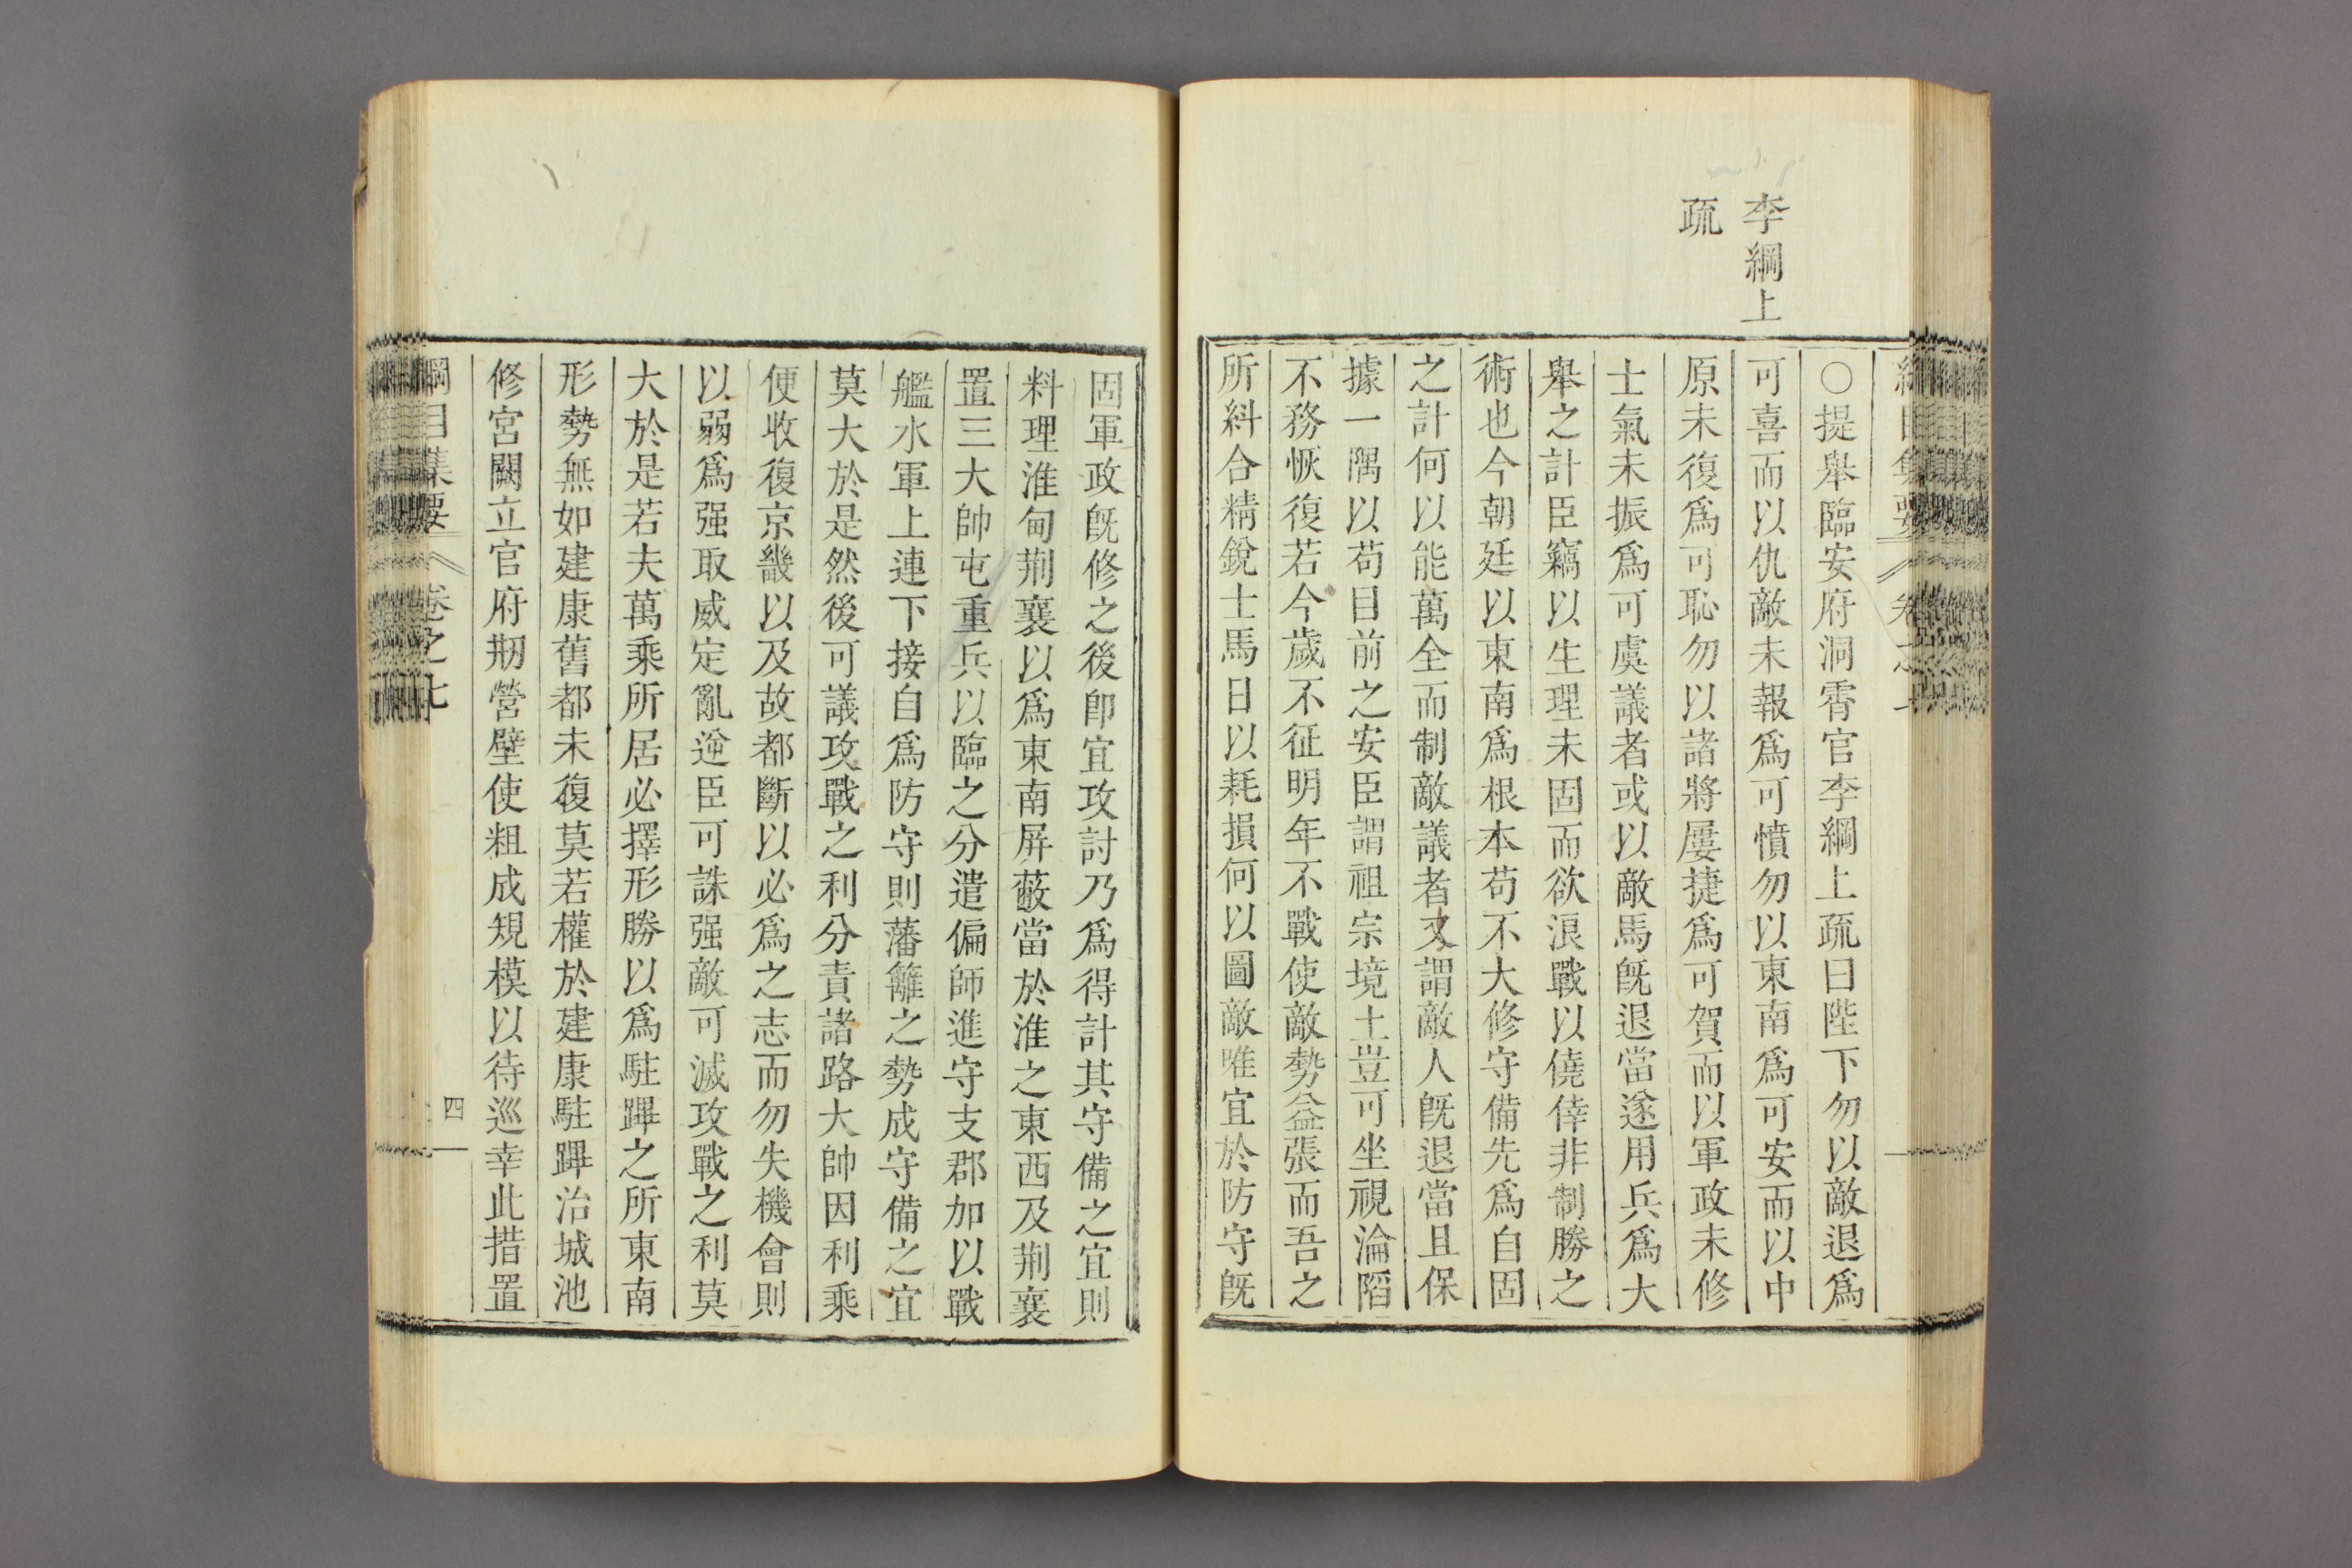 李綱上
疏
○提舉臨安府洞霄官李綱上疏曰陛下勿以敵退爲
可喜而以仇敵未報爲可憤勿以東南爲可安而以中
原未復爲可恥勿以諸將屢捷爲可賀而以軍政未修
士氣未振爲可虞議者或以敵馬既退當遂用兵爲大
舉之計臣竊以生理未固而欲浪戰以僥倖非制勝之
術也今朝廷以東南爲根本苟不大修守備先爲自固
之計何以能萬全而制敵議者又謂敵人既退當且保
據一隅以苟目前之安臣謂祖宗境土豈可坐視淪陷
不務恢復若今歲不征明年不戰使敵勢益張而吾之
所糾合精銳士馬日以耗損何以圖敵唯宜於防守既
固軍政既修之後卽宜攻討乃爲得計其守備之宜則
料理淮甸荆襄以爲東南屏蔽當於淮之東西及荆襄
置三大帥屯重兵以臨之分遣偏師進守支郡加以戰
艦水軍上連下接自爲防守則藩籬之勢成守備之宜
莫大於是然後可議攻戰之利分責諸路大帥因利乘
便收復京畿以及故都斷以必爲之志而勿失機會則
以弱爲强取威定亂逆臣可誅强敵可滅攻戰之利莫
大於是若夫萬乘所居必擇形勝以爲駐蹕之所東南
形勢無如建康舊都未復莫若權於建康駐蹕治城池
修宮闕立官府剏營壁使粗成規模以待巡幸此措置
綱目集要
卷之七
四